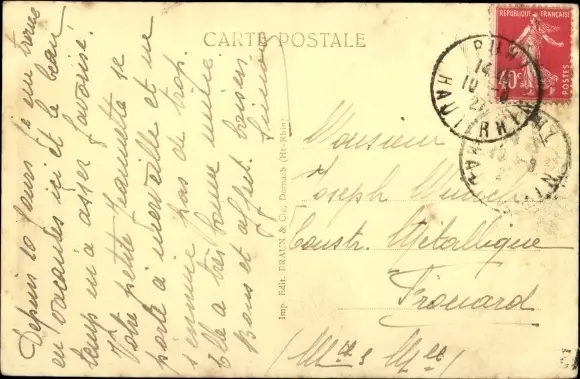 CARTE POSTALE
RÉPUBLIQUE FRANÇAISE
40c
POSTES
HAUT-RHIN
Depuis 10 jours je me trouve
en vacances ici et le beau
temps m'a assez favorisé.
Votre petite Jeannette se
porte à merveille et ne
s'ennuie pas de trop.
Elle a très bonne mine.
Bons et affect. baisers
Simone
Imp. Edit. BRAUN & Cie, Dornach (Ht-Rhin)
Monsieur
Joseph
Constr. Métallique
Frouard
(Mthe & Mlle)